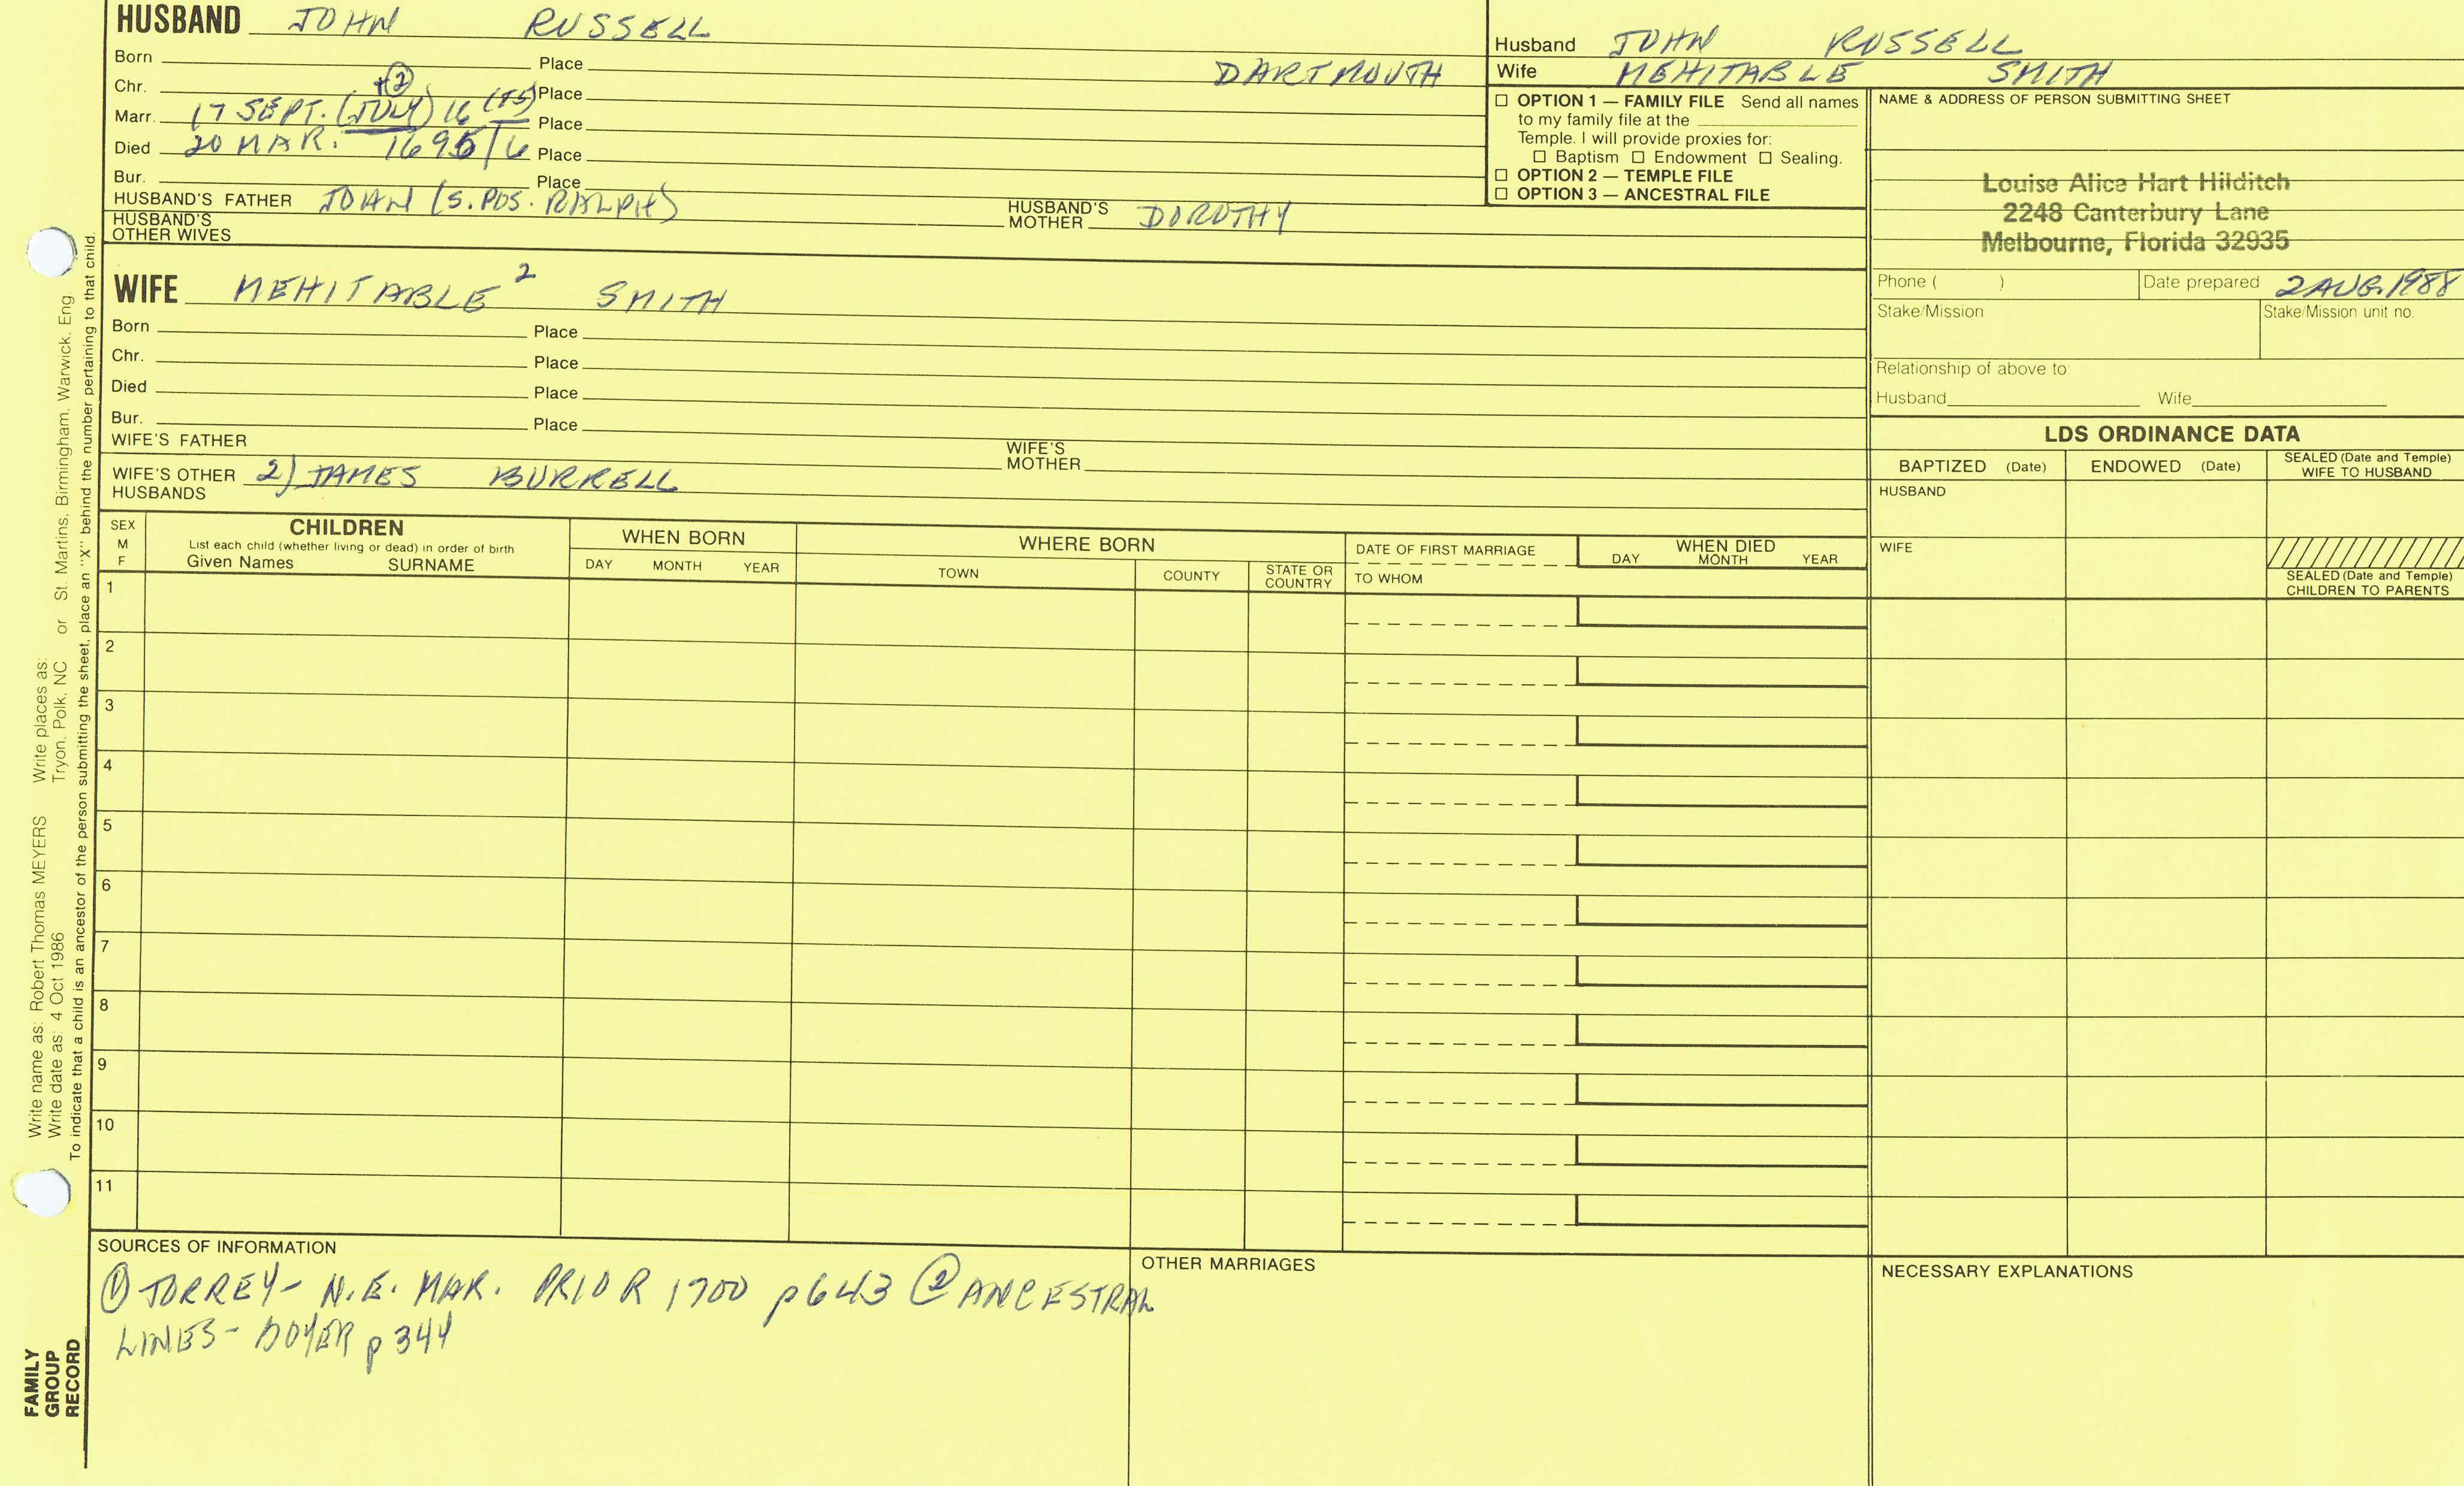 HUSBAND JOHN RUSSELL
Born Place DARTMOUTH
Chr. Place
+②
Marr. 17 SEPT. (JULY) 16 Place
Died 20 MAR. 1695/6 Place
Bur. Place
HUSBAND'S FATHER JOHN (S. POS. RALPH) HUSBAND'S MOTHER DOROTHY
HUSBAND'S OTHER WIVES
WIFE MEHITABLE² SMITH
Born Place
Chr. Place
Died Place
Bur. Place
WIFE'S FATHER WIFE'S MOTHER
WIFE'S OTHER HUSBANDS 2) JAMES BURRELL
Husband JOHN RUSSELL
Wife MEHITABLE SMITH
☐ OPTION 1 — FAMILY FILE Send all names
to my family file at the
Temple. I will provide proxies for:
☐ Baptism ☐ Endowment ☐ Sealing.
☐ OPTION 2 — TEMPLE FILE
☐ OPTION 3 — ANCESTRAL FILE
NAME & ADDRESS OF PERSON SUBMITTING SHEET
Louise Alice Hart Hilditch
2248 Canterbury Lane
Melbourne, Florida 32935
Phone ( ) Date prepared 2 AUG. 1988
Stake/Mission Stake/Mission unit no.
Relationship of above to:
Husband Wife
LDS ORDINANCE DATA
BAPTIZED (Date) ENDOWED (Date) SEALED (Date and Temple) WIFE TO HUSBAND
HUSBAND
WIFE
SEALED (Date and Temple)
CHILDREN TO PARENTS
SEX M F
CHILDREN
List each child (whether living or dead) in order of birth
Given Names SURNAME
WHEN BORN
DAY MONTH YEAR
WHERE BORN
TOWN COUNTY STATE OR COUNTRY
DATE OF FIRST MARRIAGE
TO WHOM
WHEN DIED
DAY MONTH YEAR
1
2
3
4
5
6
7
8
9
10
11
SOURCES OF INFORMATION
① TORREY- N.E. MAR. PRIOR 1700 p643 ② ANCESTRAL
LINES- BOYER p 344
OTHER MARRIAGES
NECESSARY EXPLANATIONS
Write name as: Robert Thomas MEYERS Write places as:
Write date as: 4 Oct 1986 Tryon, Polk, NC or St. Martins, Birmingham, Warwick, Eng.
To indicate that a child is an ancestor of the person submitting the sheet, place an "X" behind the number pertaining to that child.
FAMILY
GROUP
RECORD